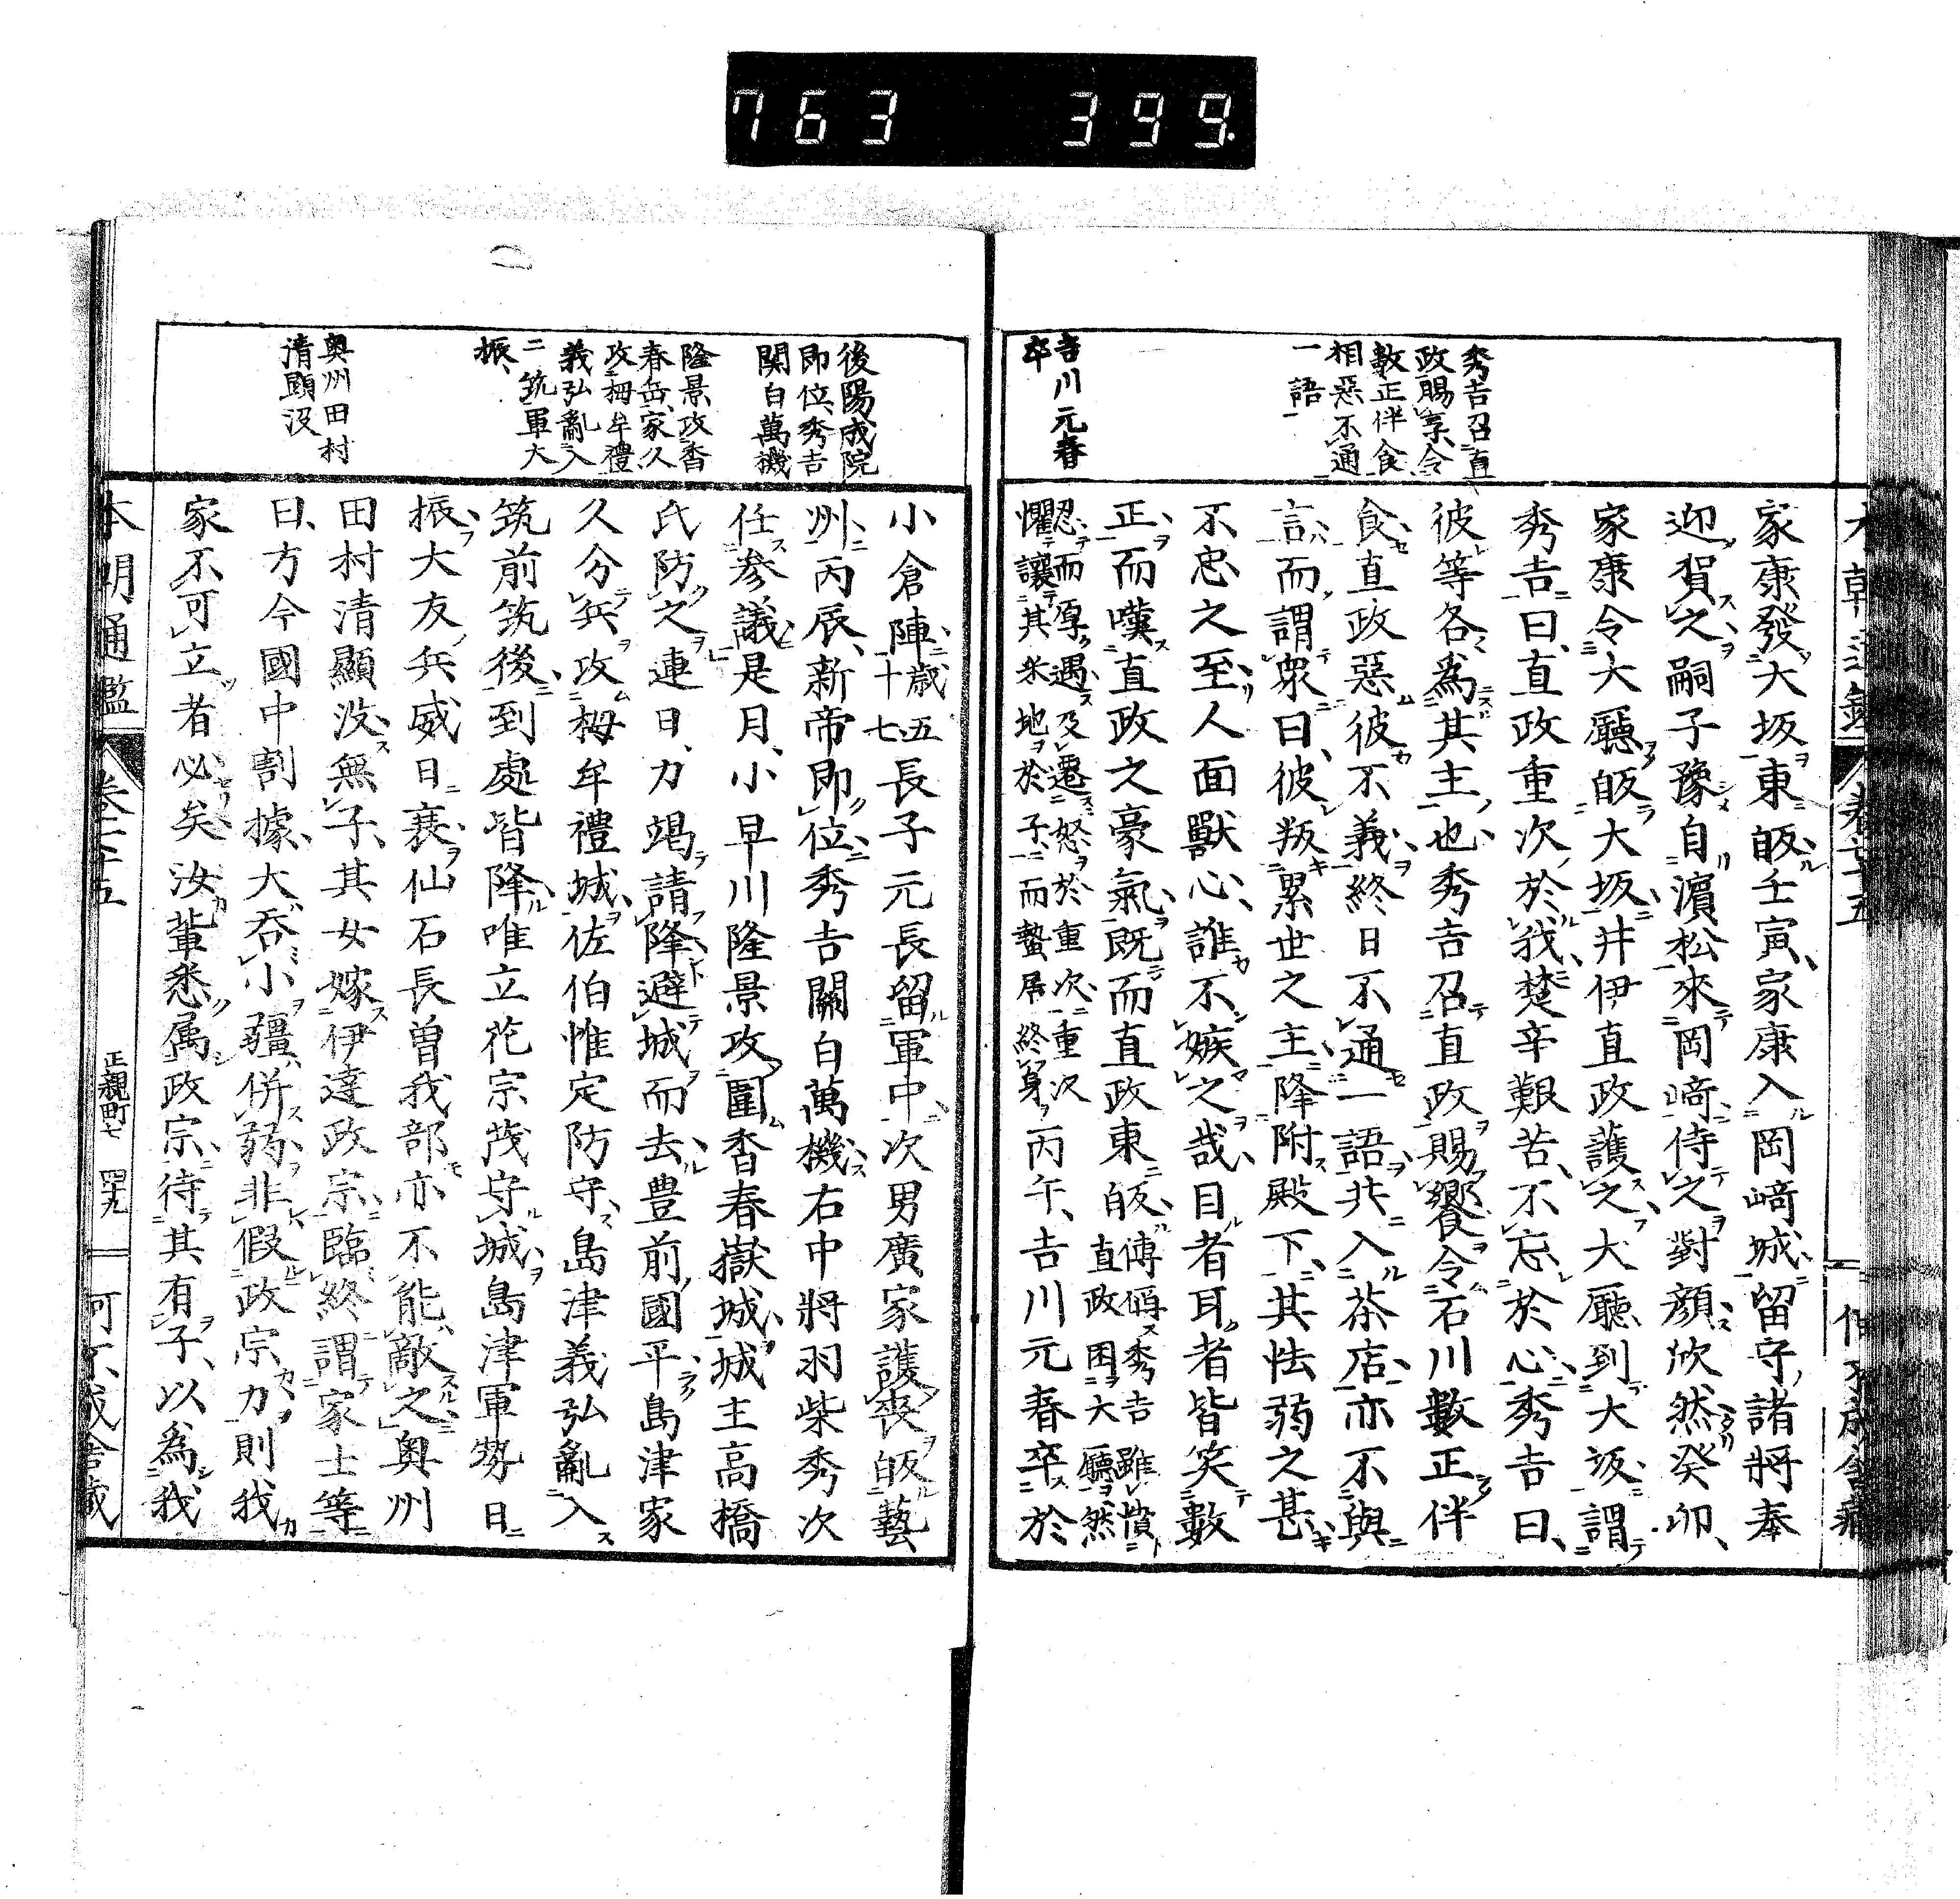 763 399.
秀吉召直
政賜享令
數正伴食
相惡不通
一語
吉川元春
卒
家康發大坂東皈壬寅家康入岡﨑城留守諸將奉
迎賀之嗣子豫自濵松來岡﨑侍之對顔欣然癸卯
家康令大廳皈大坂井伊直政護之大廳到大坂謂
秀吉曰直政重次於我楚辛艱苦不忘於心秀吉曰
彼等各爲其主也秀吉召直政賜饗令石川數正伴
食直政惡彼不義終日不通一語共入茶店亦不與
言而謂衆曰彼叛累世之主降附殿下其怯弱之甚
不忠之至人面獸心誰不嫉之哉目者耳者皆笑數
正而嘆直政之豪氣既而直政東皈傳僞秀吉雖憤直政困大廳然
忍而厚遇及遷怒於重次重次懼讓其采地於子而蟄居終身丙午吉川元春卒於
後陽成院
即位秀吉
関白萬機
隆景攻香
春岳家久
攻栂牟禮
義弘亂入
二筑軍大
振
奥州田村
清顯没
小倉陣歳五十七長子元長留軍中次男廣家護喪皈藝
州丙辰新帝即位秀吉關白萬機右中將羽柴秀次
任參議是月小早川隆景攻圍香春嶽城城主高橋
氏防之連日力竭請降避城而去豊前國平島津家
久分兵攻栂牟禮城佐伯惟定防守島津義弘亂入
筑前筑後到處皆降唯立花宗茂守城島津軍勢日
振大友兵威日衰仙石長曽我部亦不能敵之奥州
田村清顯没無子其女嫁伊達政宗臨終謂家士等
曰方今國中割據大吞小彊併弱非假政宗力則我
家不可立者必矣汝輩悉属政宗待其有子以爲我
本朝通鑑
正親町七
四十九